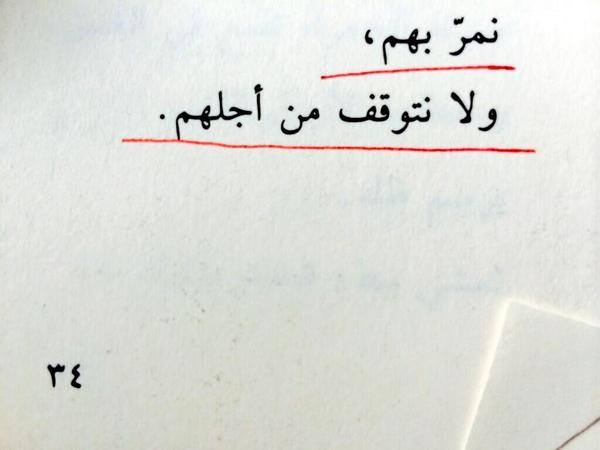 نمرّ بهم،
ولا نتوقف من أجلهم.
٣٤